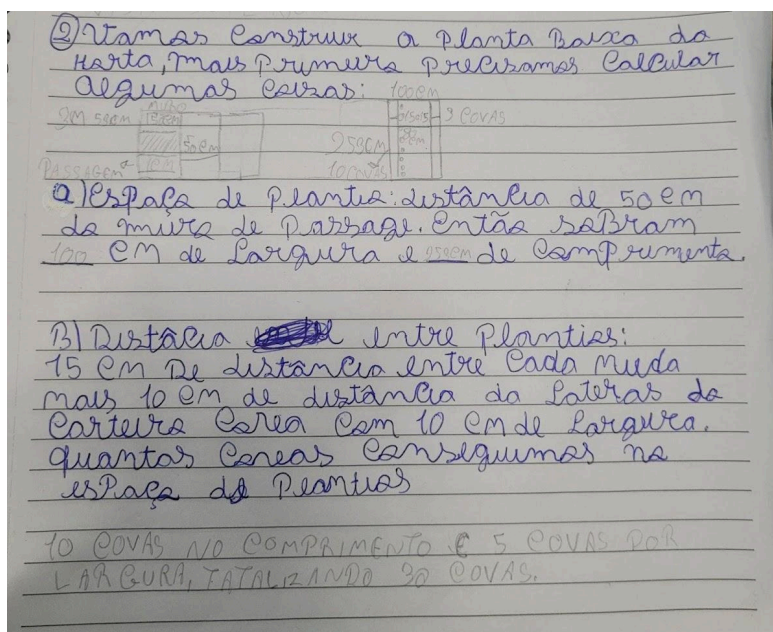 ② Vamos Construir a Planta Baixa da
Horta, mais Primeiro Precisamos Calcular
algumas Coisas:
100 cm
MURO
2M 50cm
50cm
3 COVAS
250cm
PASSAGEM
10 COVAS
a) espaço de Plantio: distância de 50 cm
do muro de Passage. Então sobram
100 cm de Largura e 250cm de Comprimento.
B) Distâcia entre Plantios:
15 cm De distância entre Cada muda
mais 10 cm de distância da Lateras do
Canteiro Cova Com 10 cm de Largura.
quantas Covas Conseguimos no
espaço de Plantios
10 COVAS NO COMPRIMENTO E 5 COVAS POR
LARGURA, TATALIZANDO 30 COVAS.